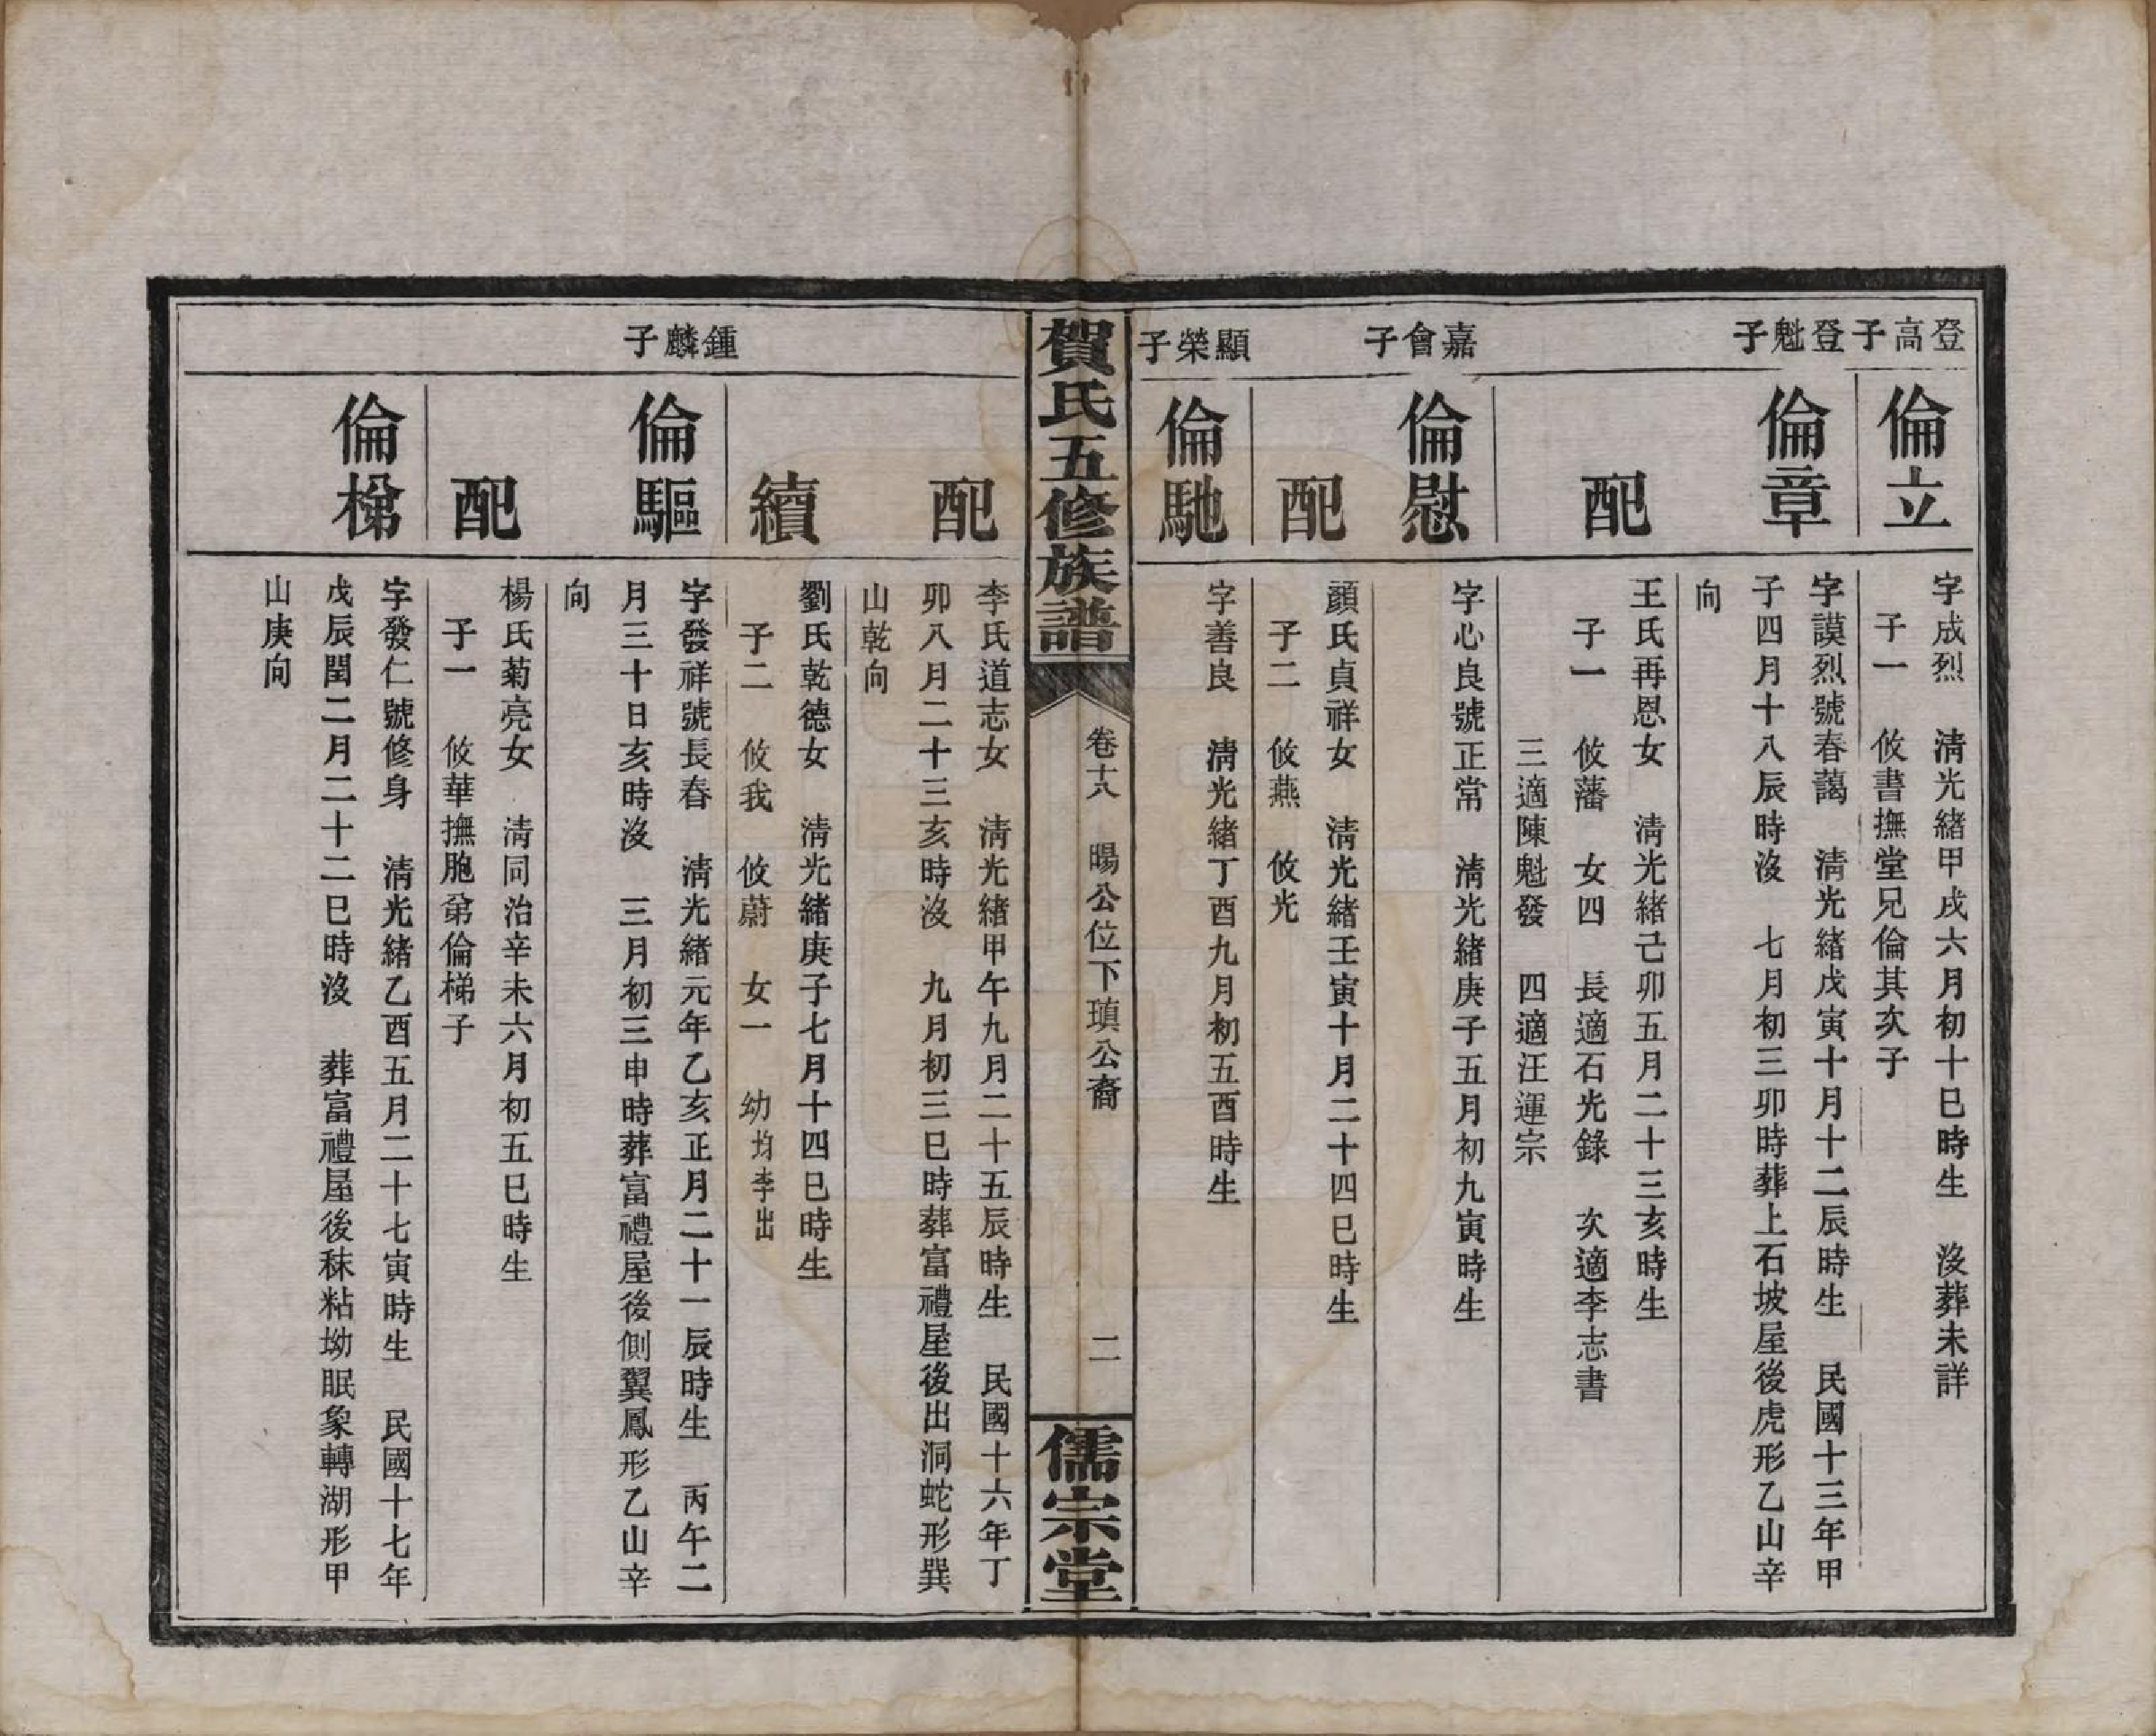 登高子
倫立
字成烈　清光緒甲戌六月初十巳時生　沒葬未詳
子一　攸書撫堂兄倫其次子
登魁子
倫章
字謨烈號春藹　清光緒戊寅十月十二辰時生　民國十三年甲
子四月十八辰時沒　七月初三卯時葬上石坡屋後虎形乙山辛
向
配
王氏再恩女　清光緒己卯五月二十三亥時生
子一　攸藩　女四　長適石光錄　次適李志書
三適陳魁發　四適汪運宗
嘉會子
倫慰
字心良號正常　清光緒庚子五月初九寅時生
配
顏氏貞祥女　清光緒壬寅十月二十四巳時生
子二　攸燕　攸光
顯榮子
倫馳
字善良　清光緒丁酉九月初五酉時生
賀氏五修族譜
卷十八　暘公位下瑱公裔
二
儒宗堂
配
李氏道志女　清光緒甲午九月二十五辰時生　民國十六年丁
卯八月二十三亥時沒　九月初三巳時葬富禮屋後出洞蛇形巽
山乾向
續
劉氏乾德女　清光緒庚子七月十四巳時生
子二　攸我　攸蔚　女一　幼均李出
鍾麟子
倫驅
字發祥號長春　清光緒元年乙亥正月二十一辰時生　丙午二
月三十日亥時沒　三月初三申時葬富禮屋後側翼鳳形乙山辛
向
配
楊氏菊亮女　清同治辛未六月初五巳時生
子一　攸華撫胞弟倫梯子
倫梯
字發仁號修身　清光緒乙酉五月二十七寅時生　民國十七年
戊辰閏二月二十二巳時沒　葬富禮屋後秣粘坳眠象轉湖形甲
山庚向